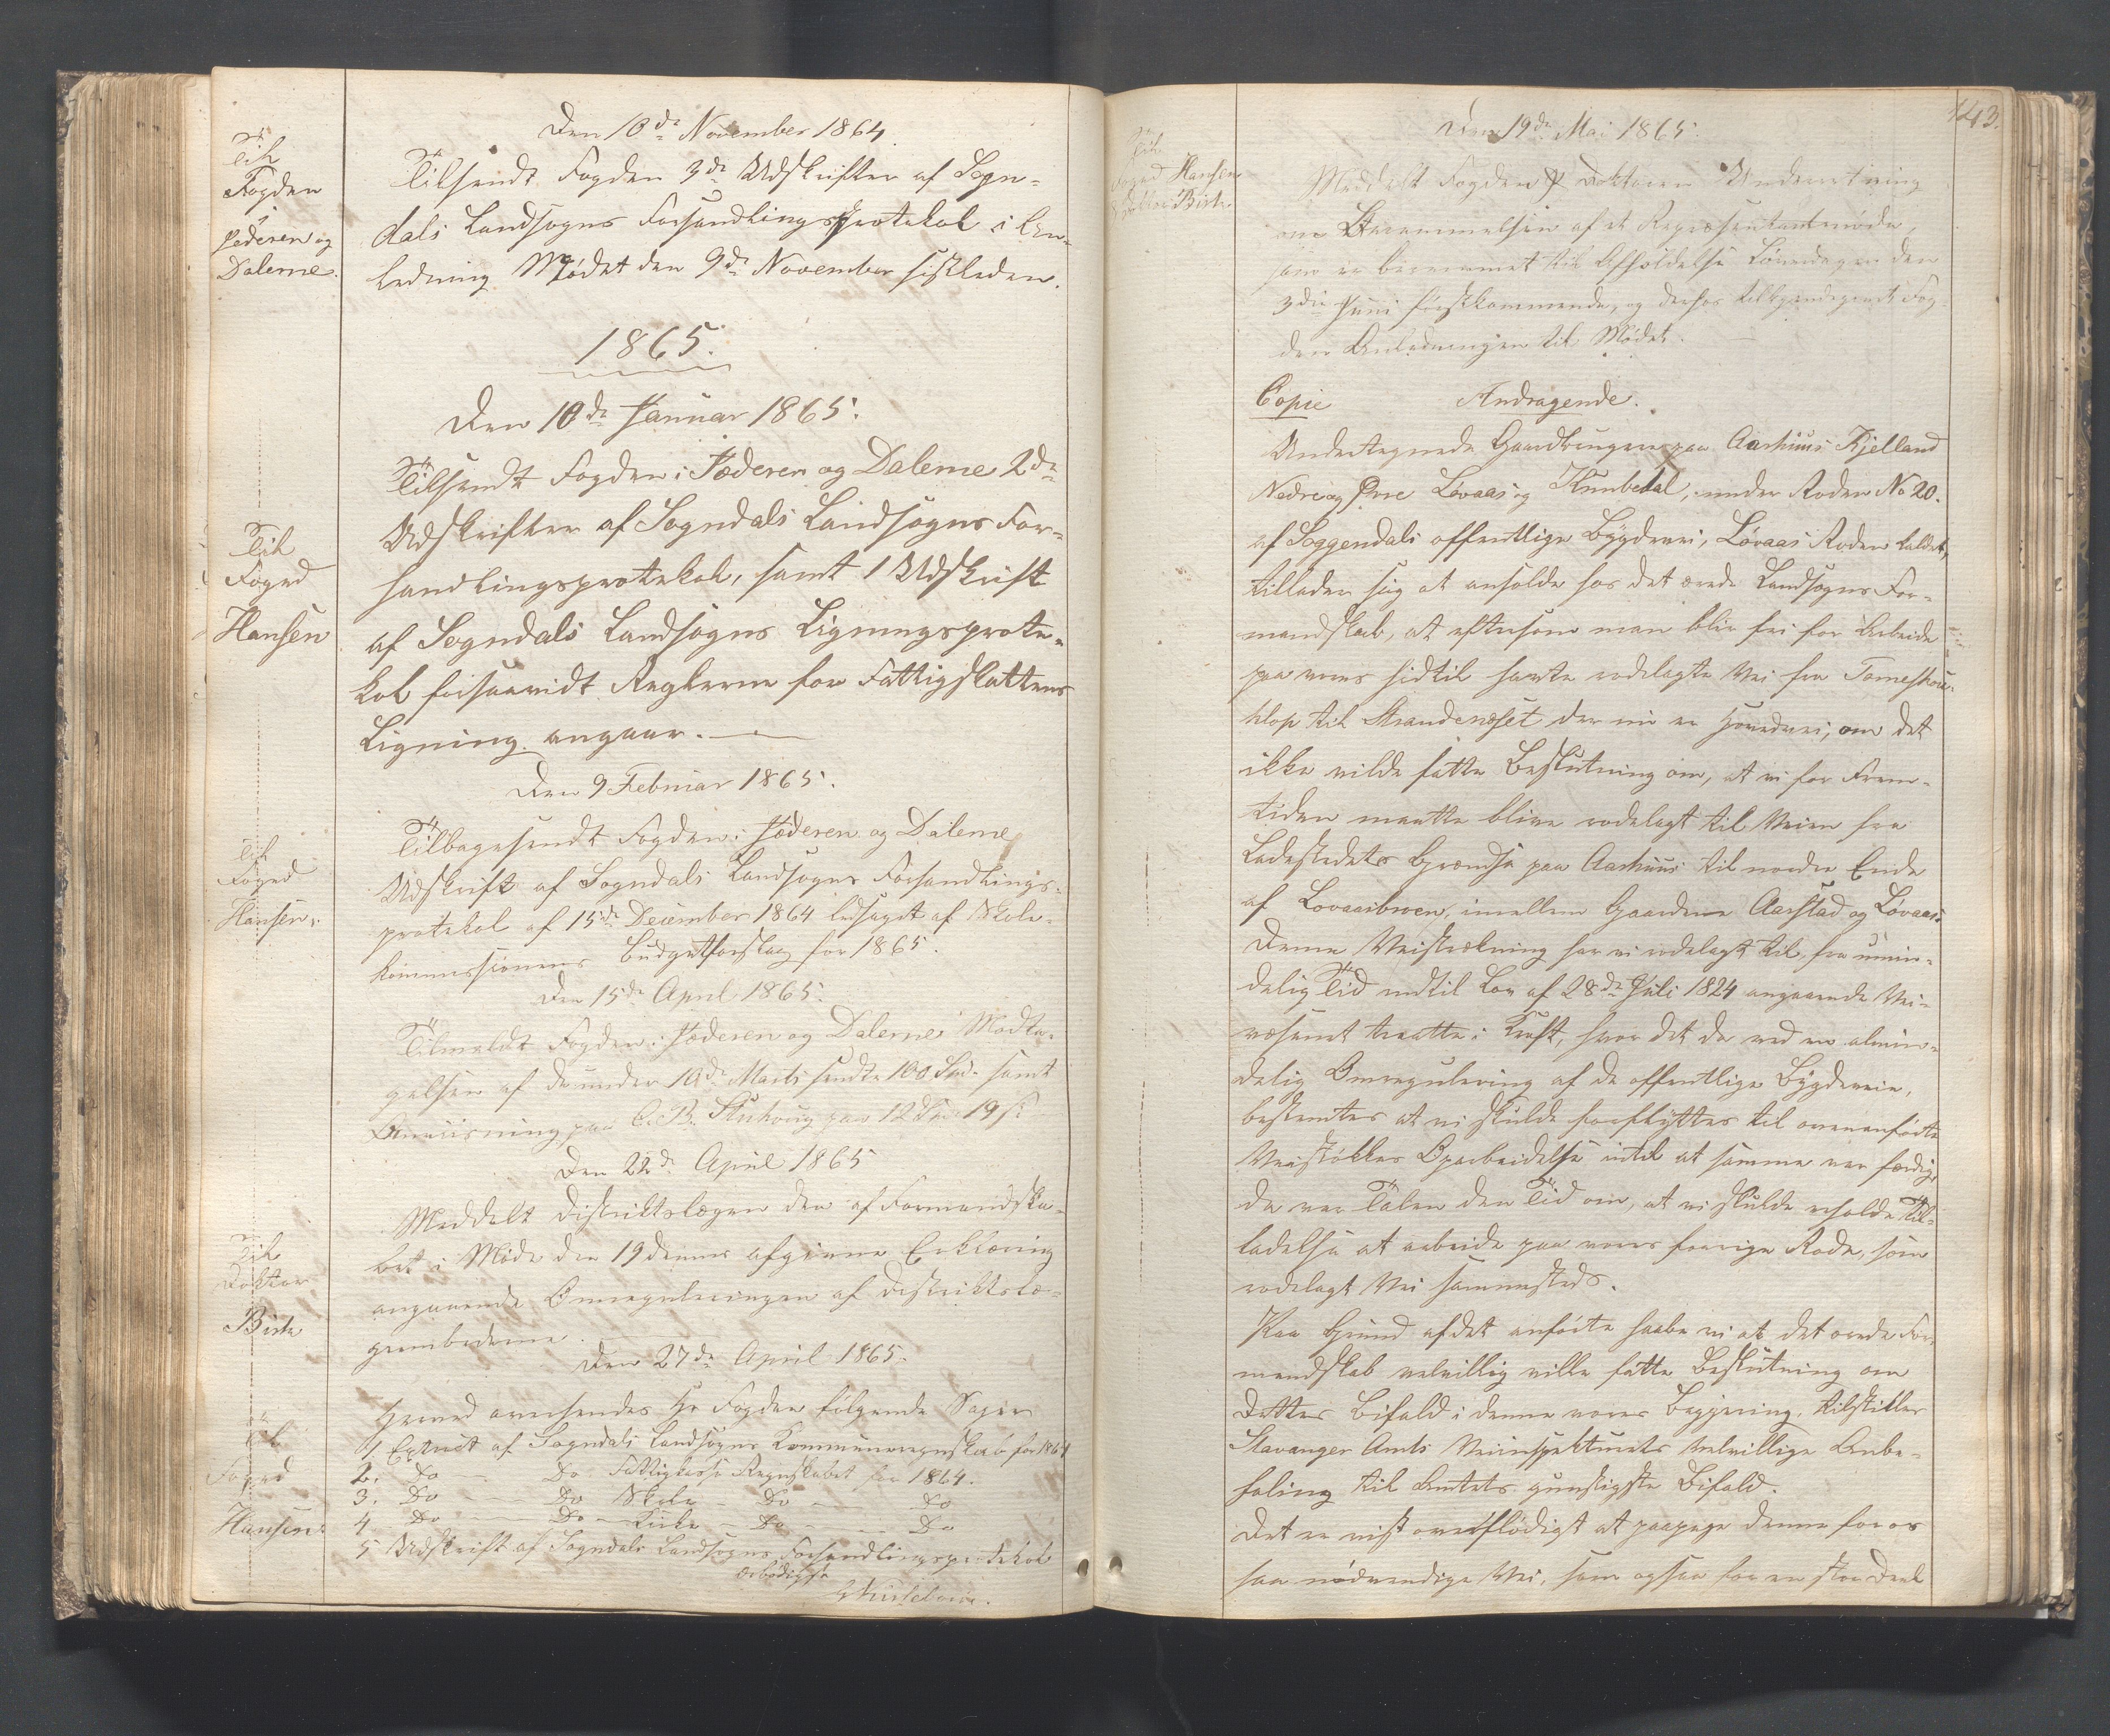 Den 10de November 1864
Til
Fogden
i
Jæderen og
Dalerne.
Tilsendt Fogden 3de Udskrifter af Sogn-
dals Landsogns Forhandlingsprotokol i An-
ledning Mødet den 9de November sidstleden.
1865.
Den 10de Januar 1865.
Til
Foged
Hansen
Tilsendt Fogden i Jæderen og Dalerne 2de
Udskrifter af Sogndals Landsogns For-
handlingsprotokol, samt 1 Udskrift
af Sogndals Landsogns Ligningsproto-
kol forsaavidt Reglerne for Fattigskattens
Ligning angaar.
Den 9 Februar 1865.
Til
Foged
Hansen.
Tilbagesendt Fogden i Jæderen og Dalerne
Udskrift af Sogndals Landsogns Forhandlings-
protokol af 15de December 1864 ledsaget af Skole-
kommissionens Budgetforslag for 1865.
Den 15de April 1865.
Tilmeldt Fogden i Jæderen og Dalerne Modta-
gelsen af de under 10de Marts sendte 100 Spd. samt
Anviisning paa C. B. paa 12 Spd. 19 ß
Den 22de April 1865
Til
Doktor
Birch
Meddelt Distriktslægen den af Formandska-
bet i Møde den 19 dennes afgivne Erklæring
angaaende Omreguleringen af Distriktslæ-
gembederne.
Den 27de April 1865.
Til
Foged
Hansen
Herved oversendes Hr Fogden følgende Sager
1. Extract af Sogndals Landsogns Kommuneregnskab for 1864
2. Do — Do Fattigkasse Regnskabet for 1864.
3. Do — Do Skole — Do — Do
4 Do — Do — Kirke — Do — Do
5 Udskrift af Sogndals Landsogns Forhandlingsprotokol
Ærbødigst
143.
Den 19de Mai 1865.
Til
Foged Hansen
Doktor Birch.
Meddelt Fogden & Doktoren Underretning
om Berammelsen af et Repræsentantmøde,
som er berammet til Afholdelse Løverdagen den
3die Juni førstkommende, og derhos tilkjendegivet Fog-
den Anledningen til Mødet.
Copie Andragende.
Undertegnede Gaardbrugere paa Aarhuus Kjelland
Nedre og Øvre Løvaas og, under Roden No 20.
af Soggendals offentlige Bygdevei, Løvaas Roden kaldet,
tillader sig at anholde hos det ærede Landsogns For-
mandskab, at eftersom man blir fri for Arbeide
paa vores hidtil havte rodelagte Vei fra
til Strandenæset der nu er Hovedvei, om det
ikke vilde fatte Beslutning om, at vi for Frem-
tiden maatte blive rodelagt til Veien fra
Ladestedets Grændse paa Aarhuus til nordre Ende
af Lovaasbroen, imellem Gaardene Aarstad og Løvaas
Denne Veistrækning har vi rodelagt til fra umin-
delig Tid indtil Lov af 28de Juli 1824 angaaende Vei-
væsenet traatte i Kraft, hvor det da ved en almin-
delig Omregulering af de offentlige Bygdeveie,
bestemtes at vi skulde forflyttes til ovenanførte
Veistøkkes Oparbeidelse indtil at samme var færdig,
da var Talen den Tid om, at vi skulde erholde Til-
ladelse at arbeide paa vores forrige Rode, som
rodelagt Vei sammesteds.
Paa Grund af det anførte haabe vi at det ærede For-
mandskab velvillig ville fatte Beslutning om
Dettes Bifald i denne vores Begjering, tilstiller
Stavanger Amts Veiinspekteurets velvillige Anbe-
faling til Amtets gunstigste Bifald.
Det er vist overflødigt at paapege denne for os
saa nødvendige Vei, som ogsaa for en stor Deel